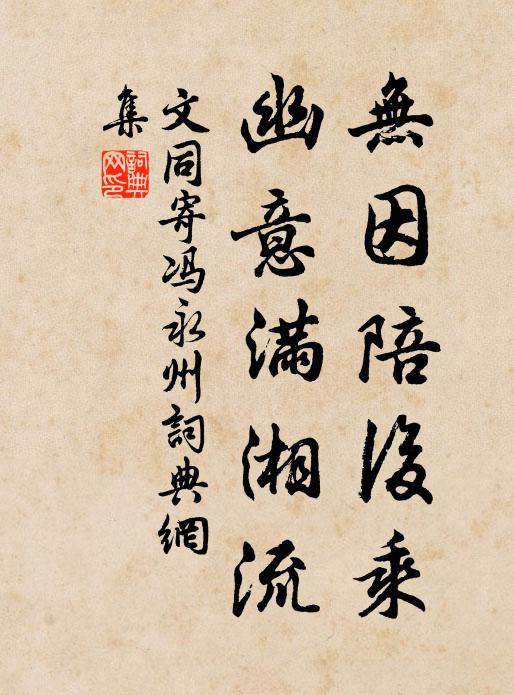 無因陪後乘
幽意滿湘流
文同寄冯永州詞典網
集
詞典
网印